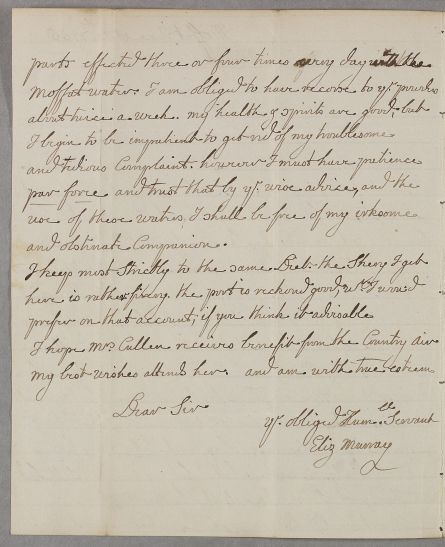 parts effected three or four times every day with the
Moffat water. I am obliged to have recorse to yr. powders
about twice a week. my health & spirits are good, but
I begin to be impatient to get rid of my troublesome
and tedious Complaint. however I must have patience
par force and trust that by yr. wise advice, and the
use of these waters. I shall be free of my irksome
and obstinate Companion.
I keep most Strictly to the same Diet. the Shery I get
here is rather fiery, the port is reckond good, wh. I wou'd
prefer on that account, if you think it advisable
I hope Mrs. Cullen receives benefit from the Country air
my best wishes attend her. and am with true esteem
Dear Sir
yr. obliged Humble Servant
Eliz Murray